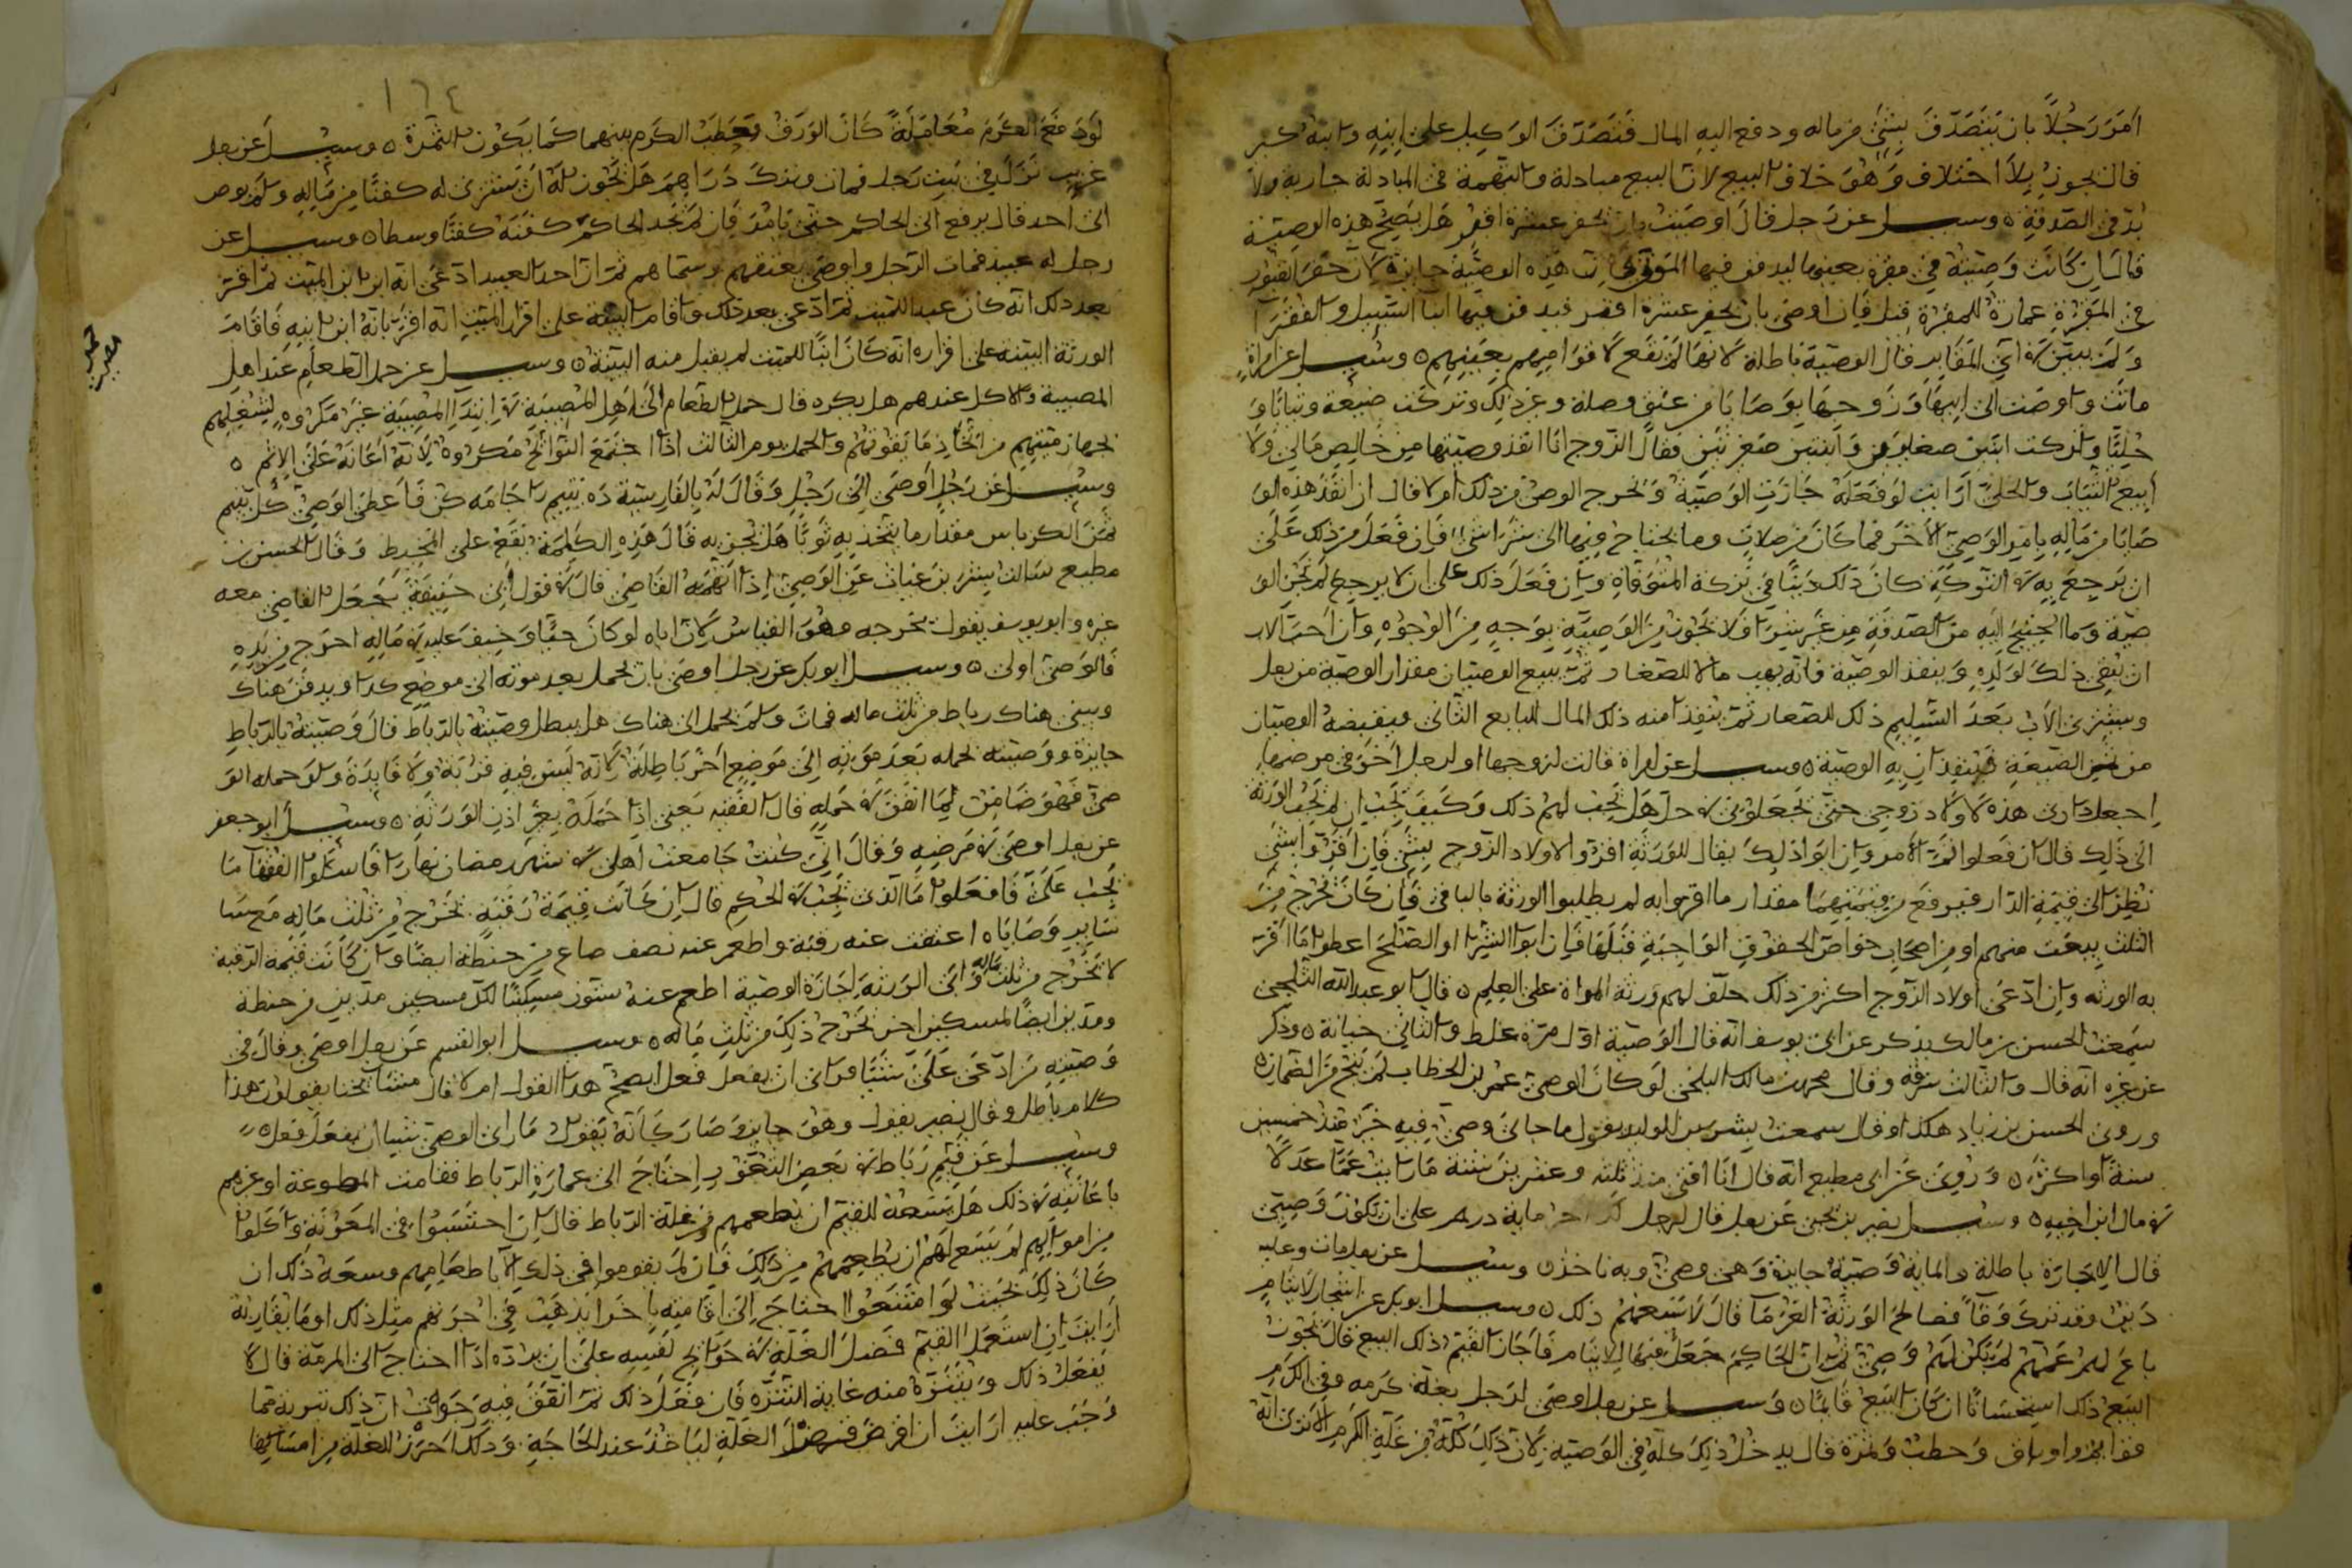 امر رجلا بان يتصدق بشئ من ماله ودفع اليه المال فتصدق الوكيل على ابنه وابنه كبير
قال يجوز بلا اختلاف وهو خلاف البيع لان البيع مبادلة والتهمة في المبادلة جارية ولا
بد في الصدقة ٥ وسئل عن رجل قال اوصيت بان يحفر عشرة اقبر هل يصح هذه الوصية
قال ان كانت وصيته في مقبرة بعينها ليدفن فيها الموتى هذه الوصية جايزة لان حفر القبور
في المقبرة عمارة للمقبرة قيل فان اوصى بان يحفر عشرة اقبر فيدفن فيها ابنا السبيل والفقرا
ولم يبين اي المقابر فقال الوصية باطلة لانها لم تقع لاقوام بعينهم ٥ وسئل عن امراة
ماتت واوصت الى ابيها وزوجها بوصايا من عتق وصلة وغير ذلك وتركت ضيعة وثيابا و
حليا وتركت ابنين صغيرين وابنتين صغيرتين فقال الزوج انا انفذ وصيتها من خالص مالي ولا
ابيع الثياب والحلي ارايت لو فعله جازت الوصية وخرج الوصي من ذلك ام لا قال ان انفذ هذه الو
صايا من ماله بامر الوصي الاخر فما كان من صلات وما يحتاج فيها الى شرا شئ فان فعل من ذلك على
ان يرجع به في التركة كان ذلك دينا في تركة المتوفاة وان فعل ذلك على ان لا يرجع لم تجز الو
صية وما احتيج اليه من الصدقة من غير شرا ولا تجوز من الوصية بوجه من الوجوه وان احب الاب
ان يبقى ذلك لولده وينفذ الوصية فانه يهب مالا للصغار ثم يبيع الوصيان مقدار الوصية من رجل
ويشتري الاب بعد التسليم ذلك للصغار ثم ينفذ منه ذلك المال البايع الثاني فيقبضه الوصيان
من ثمن الضيعة فينفذان به الوصية ٥ وسئل عن امراة قالت لزوجها او لرجل اخر في مرضها
اجعل داري هذه لاولاد زوجي حتى تجعلوني في حل هل يجب لهم ذلك وكيف يجب ان لم تجب الورثة
الى ذلك قال ان فعلوا تم الامر وان ابوا ذلك يقال للورثة اقروا لاولاد الزوج بشئ فان اقروا بشئ
نظر الى قيمة الدار فيرفع من قيمتها مقدار ما اقروا به لم يطلبوا الورثة بالباقي فان كان يخرج من
الثلث بيعت منهم او من اصحاب خواص الحقوق الواجبة قبلها فان ابوا الشرا او الصلح اعطوا ما اقر
به الورثة وان ادعى اولاد الزوج اكثر من ذلك حلف لهم ورثة المراة على العلم ٥ قال ابو عبدالله الثلجي
سمعت الحسن بن مالك يذكر عن ابي يوسف انه قال الوصية اول مرة غلط والثاني خيانة ٥ وذكر
عن غيره انه قال والثالث سرقة وقال محمد مالك البلخي لو كان الوصي عمر بن الخطاب لم ينج من الضمان ٥
وروى الحسن بن زياد هكذا وقال سمعت بشر بن الوليد يقول ما جاني وصي فيه خير منذ خمسين
سنة او اكثر ٥ وروي عن ابي مطيع انه قال انا افتي منذ ثلثه وعشرين سنة ما رايت عما عدلا
في مال ابن اخيه ٥ وسئل نصر بن يحيى عن رجل قال لرجل لك اجر ماية درهم على ان تكون وصيي
قال الاجارة باطلة والماية وصية جايزة وهي وصي وبه ناخذ ٥ وسئل عن رجل مات وعليه
دين وقد ترك وقفا فصالح الورثة الغرما قال لا يسعهم ذلك ٥ وسئل ابو بكر عن اشجار لايتام
باع لهم عمهم لم يكن لهم وصي ثم ان الحاكم جعل قيما للايتام فاجاز القيم ذلك البيع قال تجوز
البيع ذلك استحسانا ان كان المبيع قائما ٥ وسئل عن رجل اوصى لرجل بغلة كرمه وفي الكرم
فوايم واوراق وحطب وثمرة قال يدخل ذلك كله في الوصية لان ذلك كله من غلة الكرم الا ترى انه
١٦٤
لو دفع الكرم معاملة كان الورق وحطب الكرم بينهما كما يكون الثمرة ٥ وسئل عن رجل
غريب نزل في بيت رجل فمات وترك دراهم هل تجوز له ان يشتري له كفنا من ماله ولم يوص
الى احد قال يرفع الى الحاكم حتى يامر فان لم يجد الحاكم كفنه كفنا وسطا ٥ وسئل عن
رجل له عبيد فمات الرجل واوصى بعتقهم وسماهم ثم ان احد العبيد ادعى انه ابن ابن الميت ثم اقر
بعد ذلك انه كان عبد الميت ثم ادعى بعد ذلك واقام البينة على اقرار الميت انه اقر بانه ابن ابنه فاقام
الورثة البينة على اقراره انه كان ابنا للميت لم يقبل منه البينة ٥ وسئل عن حمل الطعام عند اهل
المصيبة والاكل عندهم هل يكره قال حمل الطعام الى اهل المصيبة في ابتدا المصيبة غير مكروه لشغلهم
بجهاز ميتهم من اتخاذ ما يقوتهم والحمل يوم الثالث اذا اجتمع النوايح مكروه لانه اعانة على الاثم ٥
وسئل عن رجل اوصى الى رجل وقال له بالفارسية ده يتيم را جامه كن فاعطى الوصي كل يتيم
ثمن الكرباس مقدار ما يتخذ به ثوبا هل يجزيه قال هذه الكلمة تقع على المخيط وقال الحسن بن
مطيع سالت بشر بن غياث عن الوصي اذا اتهمه القاضي قال في قول ابي حنيفة يجعل القاضي معه
غيره وابو يوسف يقول يخرجه وهو القياس لان اباه لو كان حيا وخيف عليه في ماله اخرج من يده
فالوصي اولى ٥ وسئل ابو بكر عن رجل اوصى بان يحمل بعد موته الى موضع كذا ويدفن هناك
ويبنى هناك رباط من ثلث ماله فمات ولم يحمل الى هناك هل يبطل وصيته بالرباط قال وصيته بالرباط
جايزة ووصيته بحمله بعد موته الى موضع اخر باطلة لانه ليس فيه قربة ولا فايدة ولو حمله الو
صي فهو ضامن لما انفق في حمله قال الفقيه يعني اذا حمله بغير اذن الورثة ٥ وسئل ابو جعفر
عن رجل اوصى في مرضه وقال اني كنت جامعت اهلي في شهر رمضان نهارا فاسئلوا الفقها ما
يجب علي فافعلوا ما الذي يجب في الحكم قال ان كانت قيمة رقبته تخرج من ثلث ماله مع سا
ساير وصاياه اعتقت عنه رقبة واطعم عنه نصف صاع من حنطة ايضا وان كانت قيمة الرقبة
لا تخرج من ثلث ماله وابى الورثة اجازة الوصية اطعم عنه ستون مسكينا لكل مسكين مدين من حنطة
ومدين ايضا لمسكين اخر تخرج ذلك من ثلث ماله ٥ وسئل ابو القسم عن رجل اوصى وقال في
وصيته من ادعى علي شيئا فراى ان يفعل فعل ايصح هذا القول ام لا قال مشايخنا يقولون هذا
كلام باطل وقال نصير يقول وهو جايز وصار كانه يقول ما راى الوصي شيئا ان يفعل فعل ٥
وسئل عن قيم رباط في بعض الثغور احتاج الى عمارة الرباط فقامت المطوعة او غيرهم
باعانته في ذلك هل يسعه للقيم ان يطعمهم من غلة الرباط قال ان احتسبوا في المعونة واكلوا
من اموالهم لم يسع لهم ان يطعمهم من ذلك فان لم يقوموا في ذلك الا باطعامهم وسعه ذلك ان
كان ذلك حيث لو امتنعوا احتاج الى اقامته باخر يذهب في اجرتهم مثل ذلك او ما يقاربه
ارايت ان استعمل القيم فضل الغلة في حوايج نفسه على ان يرده اذا احتاج الى المرمة قال لا
يفعل ذلك ويتنزه منه غاية التنزه فان فعل ذلك ثم انفق فيه رجوت ان ذلك تبرية مما
وجب عليه ارايت ان اقرض فضل الغلة لياخذ عند الحاجة وذلك احرز للغلة من امساكها